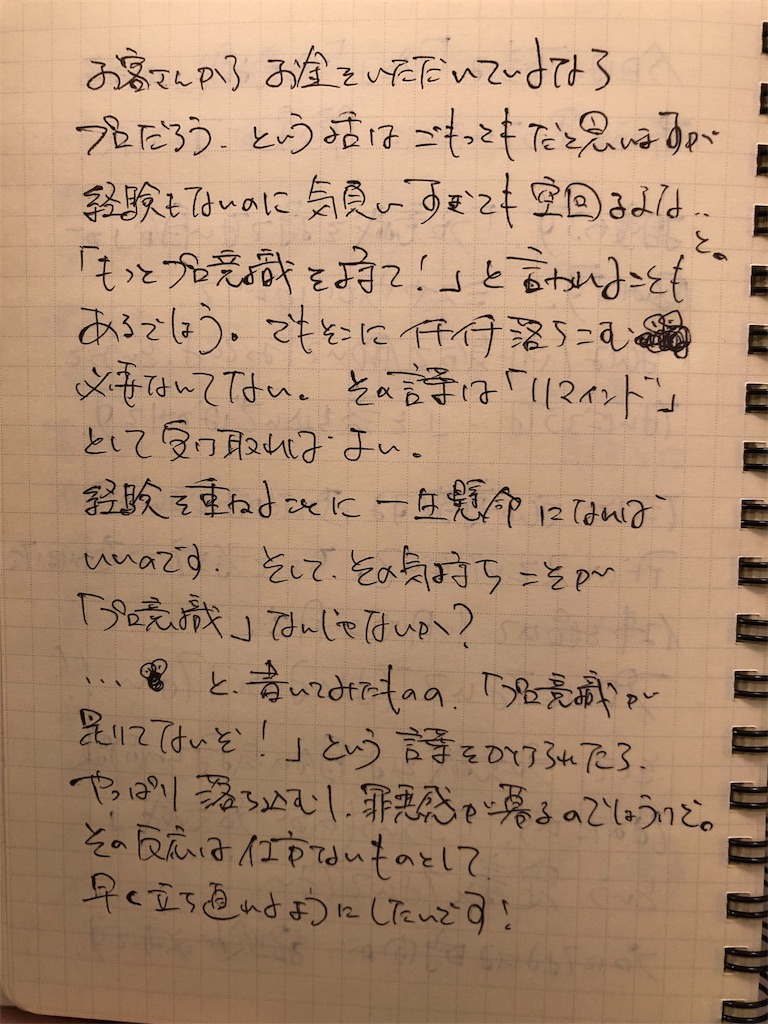 お客さんから お金をいただいているなら
プロだろう、という話は ごもっともだと思いますが
経験もないのに 気負いすぎても 空回るよな…と。
「もっとプロ意識を持て！」と言われることも
あるでしょう。でもそこに イチイチ落ちこむ
必要なんてない。その言葉は「リマインド」
として 受け取れば よい。
経験を重ねるごとに 一生懸命になれば
いいのです。そして、その気持ちこそが
「プロ意識」なんじゃないか？
… と、書いてみたものの、「プロ意識が
足りてないぞ！」という言葉をかけられたら、
やっぱり 落ち込むし、罪悪感が募るのでしょうけど。
その反応は仕方ないものとして
早く立ち直れるようにしたいです！